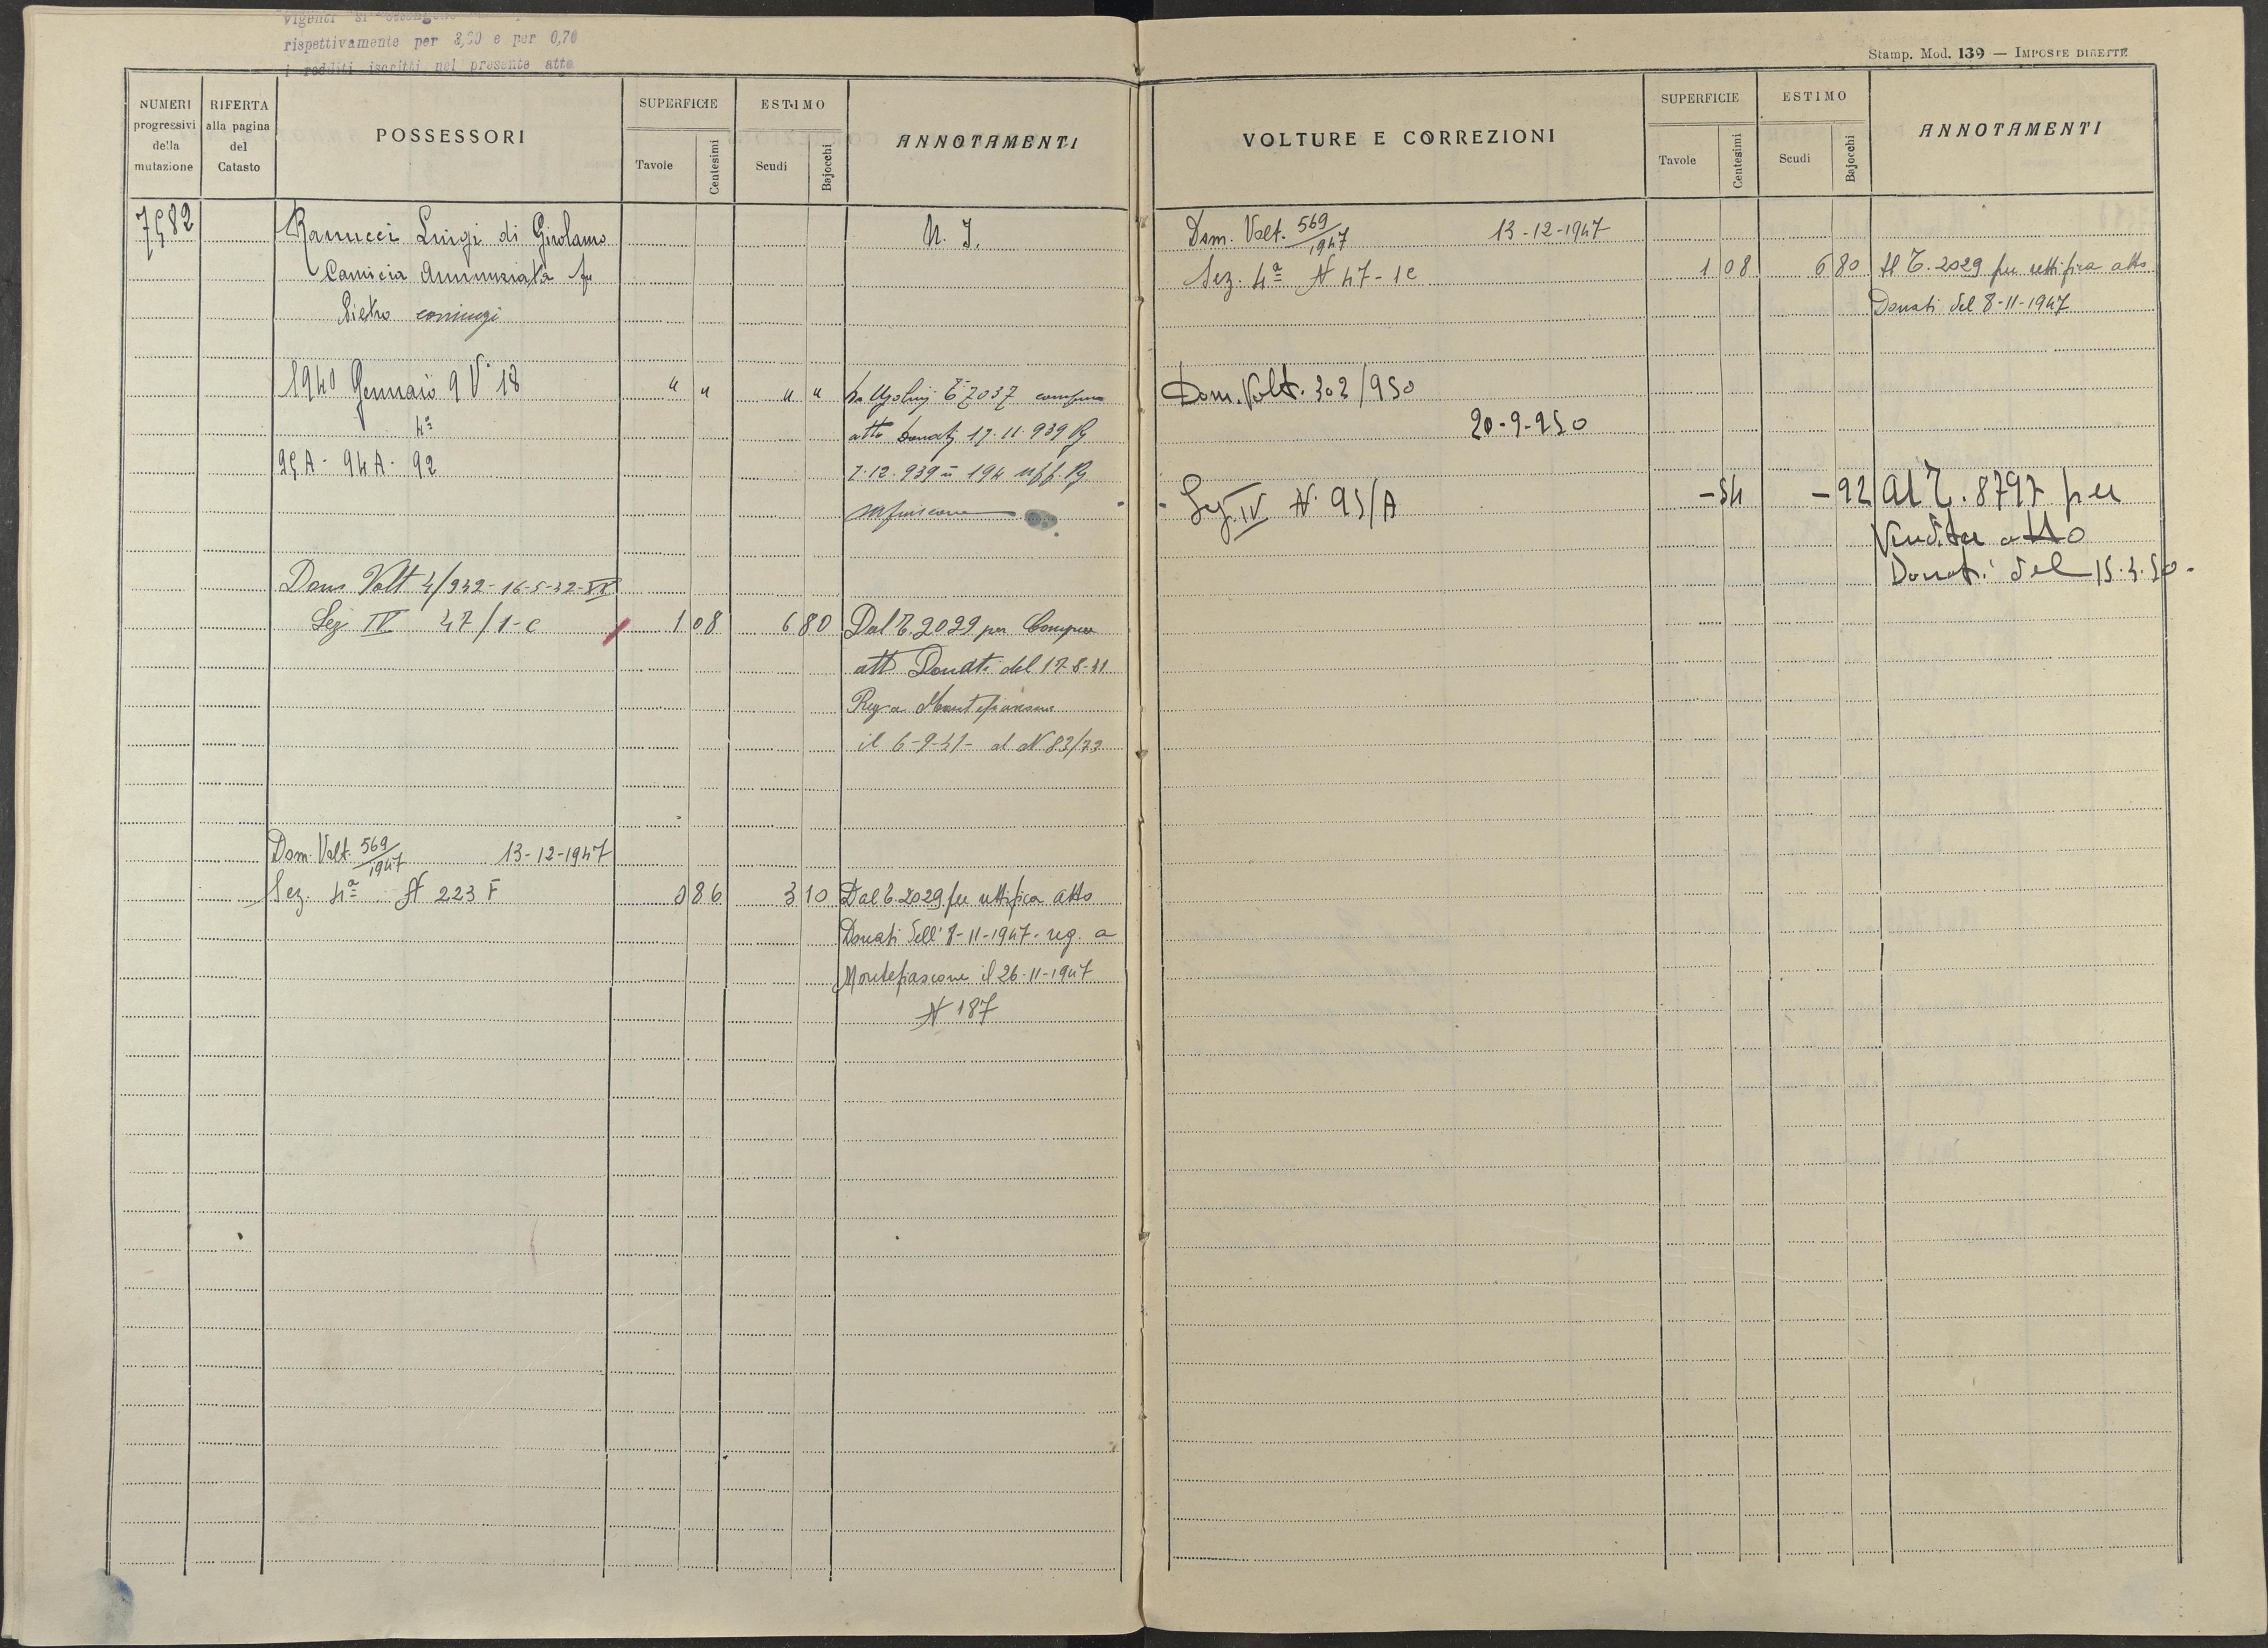 rispettivamente per 3,20 e per 0,70
i redditi iscritti nel presente atto
NUMERI progressivi della mutazione
RIFERTA alla pagina del Catasto
POSSESSORI
SUPERFICIE
Tavole Centesimi
ESTIMO
Scudi Bajocchi
ANNOTAMENTI
7582 Ranucci Luigi di Girolamo N. I.
Camicia Annunziata fu
Pietro coniugi
1940 Gennaio 9 V° 18 " " " " Da Ugolini T 7037 compra
4ª atto Donati 17.11.939 Rg
95A - 94A - 92 7.12.939 n 194 uff. Rg
Mfiascone
Dom Volt 4/942 - 16-5-42-XX
Sez IV 47/1-c 1 08 6 80 Dal T. 2029 per Compra
att Donati del 17-8-41
Reg a Montefiascone
il 6-9-41- al N 83/73
Dom. Volt. 569/1947 13-12-1947
Sez. 4ª N 223 F 0 86 3 10 Dal T. 2029 per rettifica atto
Donati dell' 8-11-1947- reg. a
Montefiascone il 26-11-1947
N 187
Stamp. Mod. 139 — IMPOSTE DIRETTE
VOLTURE E CORREZIONI
SUPERFICIE
Tavole Centesimi
ESTIMO
Scudi Bajocchi
ANNOTAMENTI
Dom. Volt. 569/1947 13-12-1947
Sez. 4ª N 47-1c 1 08 6 80 Al T. 2029 per rettifica atto
Donati del 8-11-1947
Dom. Volt. 302/950
20-9-950
Sez. IV N. 95/A -54 -92 Al T. 8797 per
Vendita atto
Donati del 15.4.50.